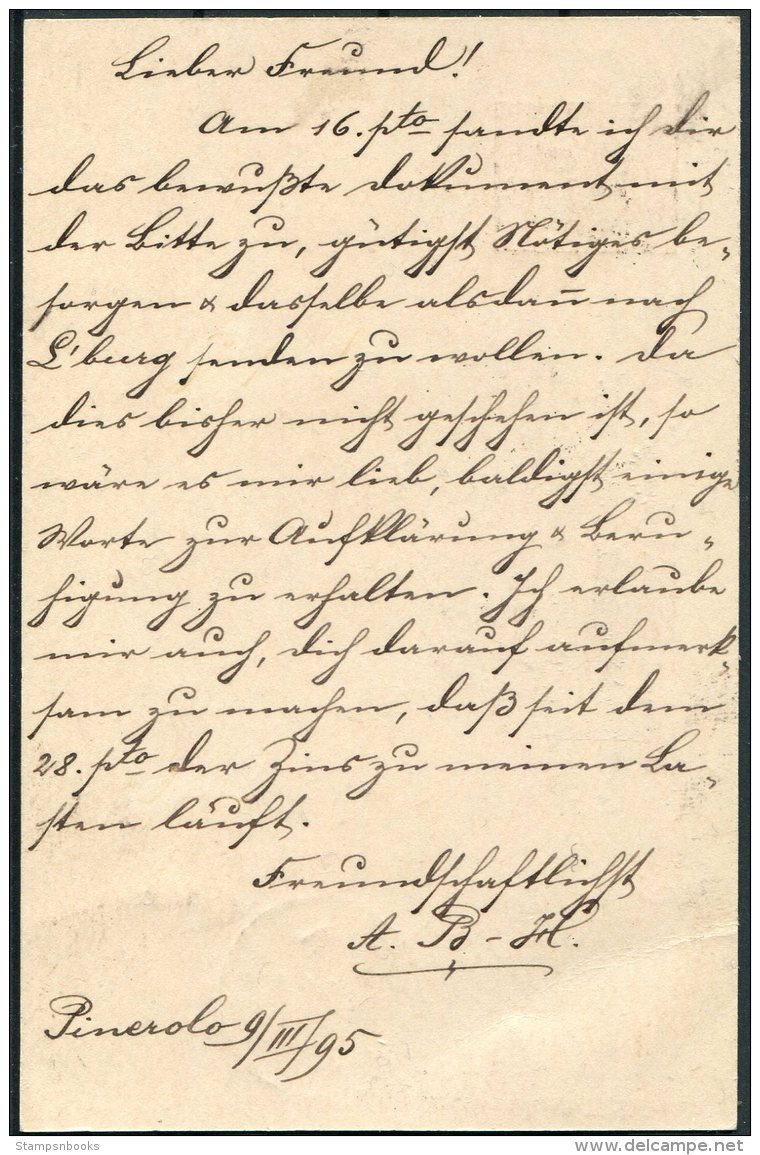 Lieber Freund!
Am 16. pto sandte ich dir
das bewußte Dokument mit
der Bitte zu, gütigst Nötiges be„
sorgen & dasselbe alsdan̄ nach
L'burg senden zu wollen. Da
dies bisher nicht geschehen ist, so
wäre es mir lieb, baldigst einige
Worte zur Aufklärung & Beru„
higung zu erhalten. Ich erlaube
mir auch, dich darauf aufmerk„
sam zu machen, daß seit dem
28. pto der Zins zu meinen La„
sten läuft.
Freundschaftlichst
A. B-H.
Pinerolo 9/III/95
Stampsnbooks
delcampe.net